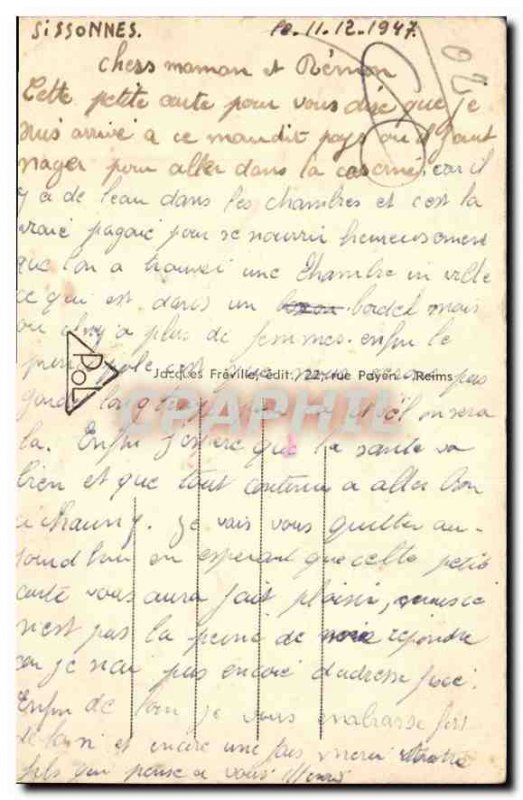 SISSONNES. le 11.12.1947.
02
chers maman et Rémon
Cette petite carte pour vous dire que je
suis arrivé a ce maudit pays ou il faut
nager pour aller dans la caserne car il
y a de l'eau dans les chambres et c'est la
vraie pagaie pour se nourrir heureusement
que l'on a trouvé une chambre en ville
ce qui est dans un bordel mais
ou il n'y a plus de femmes. enfin le
pas
POL
Jacques Fréville, édit. 22, rue Payen - Reims
CPAPHIL
longtemps
la. Enfin j'espère que la santé va
bien et que tout continu a aller bon
a Chauny. Je vais vous quitter au-
jourd'hui en esperant que cette petite
carte vous aura fait plaisir,
n'est pas la peine de repondre
car je n'ai pas encore d'adresse fixe.
Enfin de loin je vous embrasse fort
et encore une fois merci Votre
fils qui pense a vous